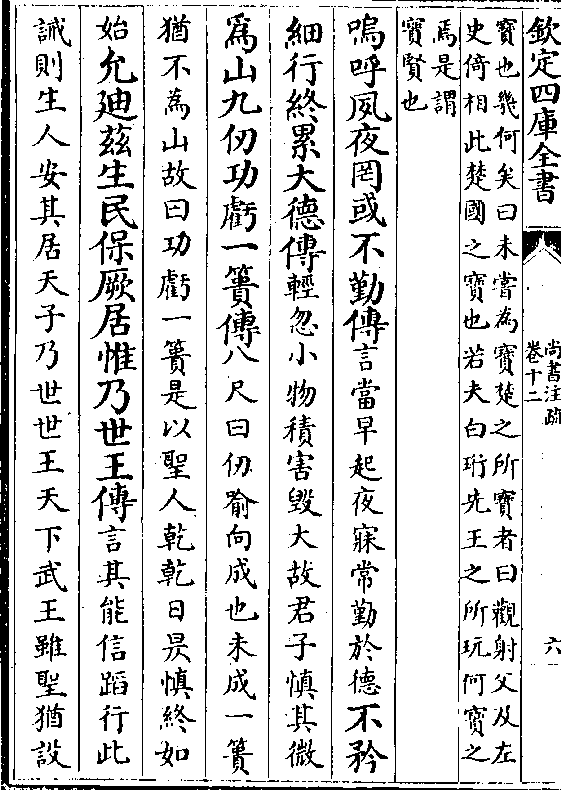 欽定四庫全書
尚書注疏
卷十二
六
寶也幾何矣曰未嘗為寶楚之所寶者曰觀射父及左
史倚相此楚國之寶也若夫白珩先王之所玩何寶之
焉是謂
寶賢也
嗚呼夙夜罔或不勤傳言當早起夜寐常勤於德不矜
細行終累大德傳輕忽小物積害毀大故君子慎其微
爲山九仞功虧一簣傳八尺曰仞喻向成也未成一簣
猶不為山故曰功虧一簣是以聖人乾乾日昃慎終如
始允廸茲生民保厥居惟乃世王傳言其能信蹈行此
誡則生人安其居天子乃世世王天下武王雖聖猶設